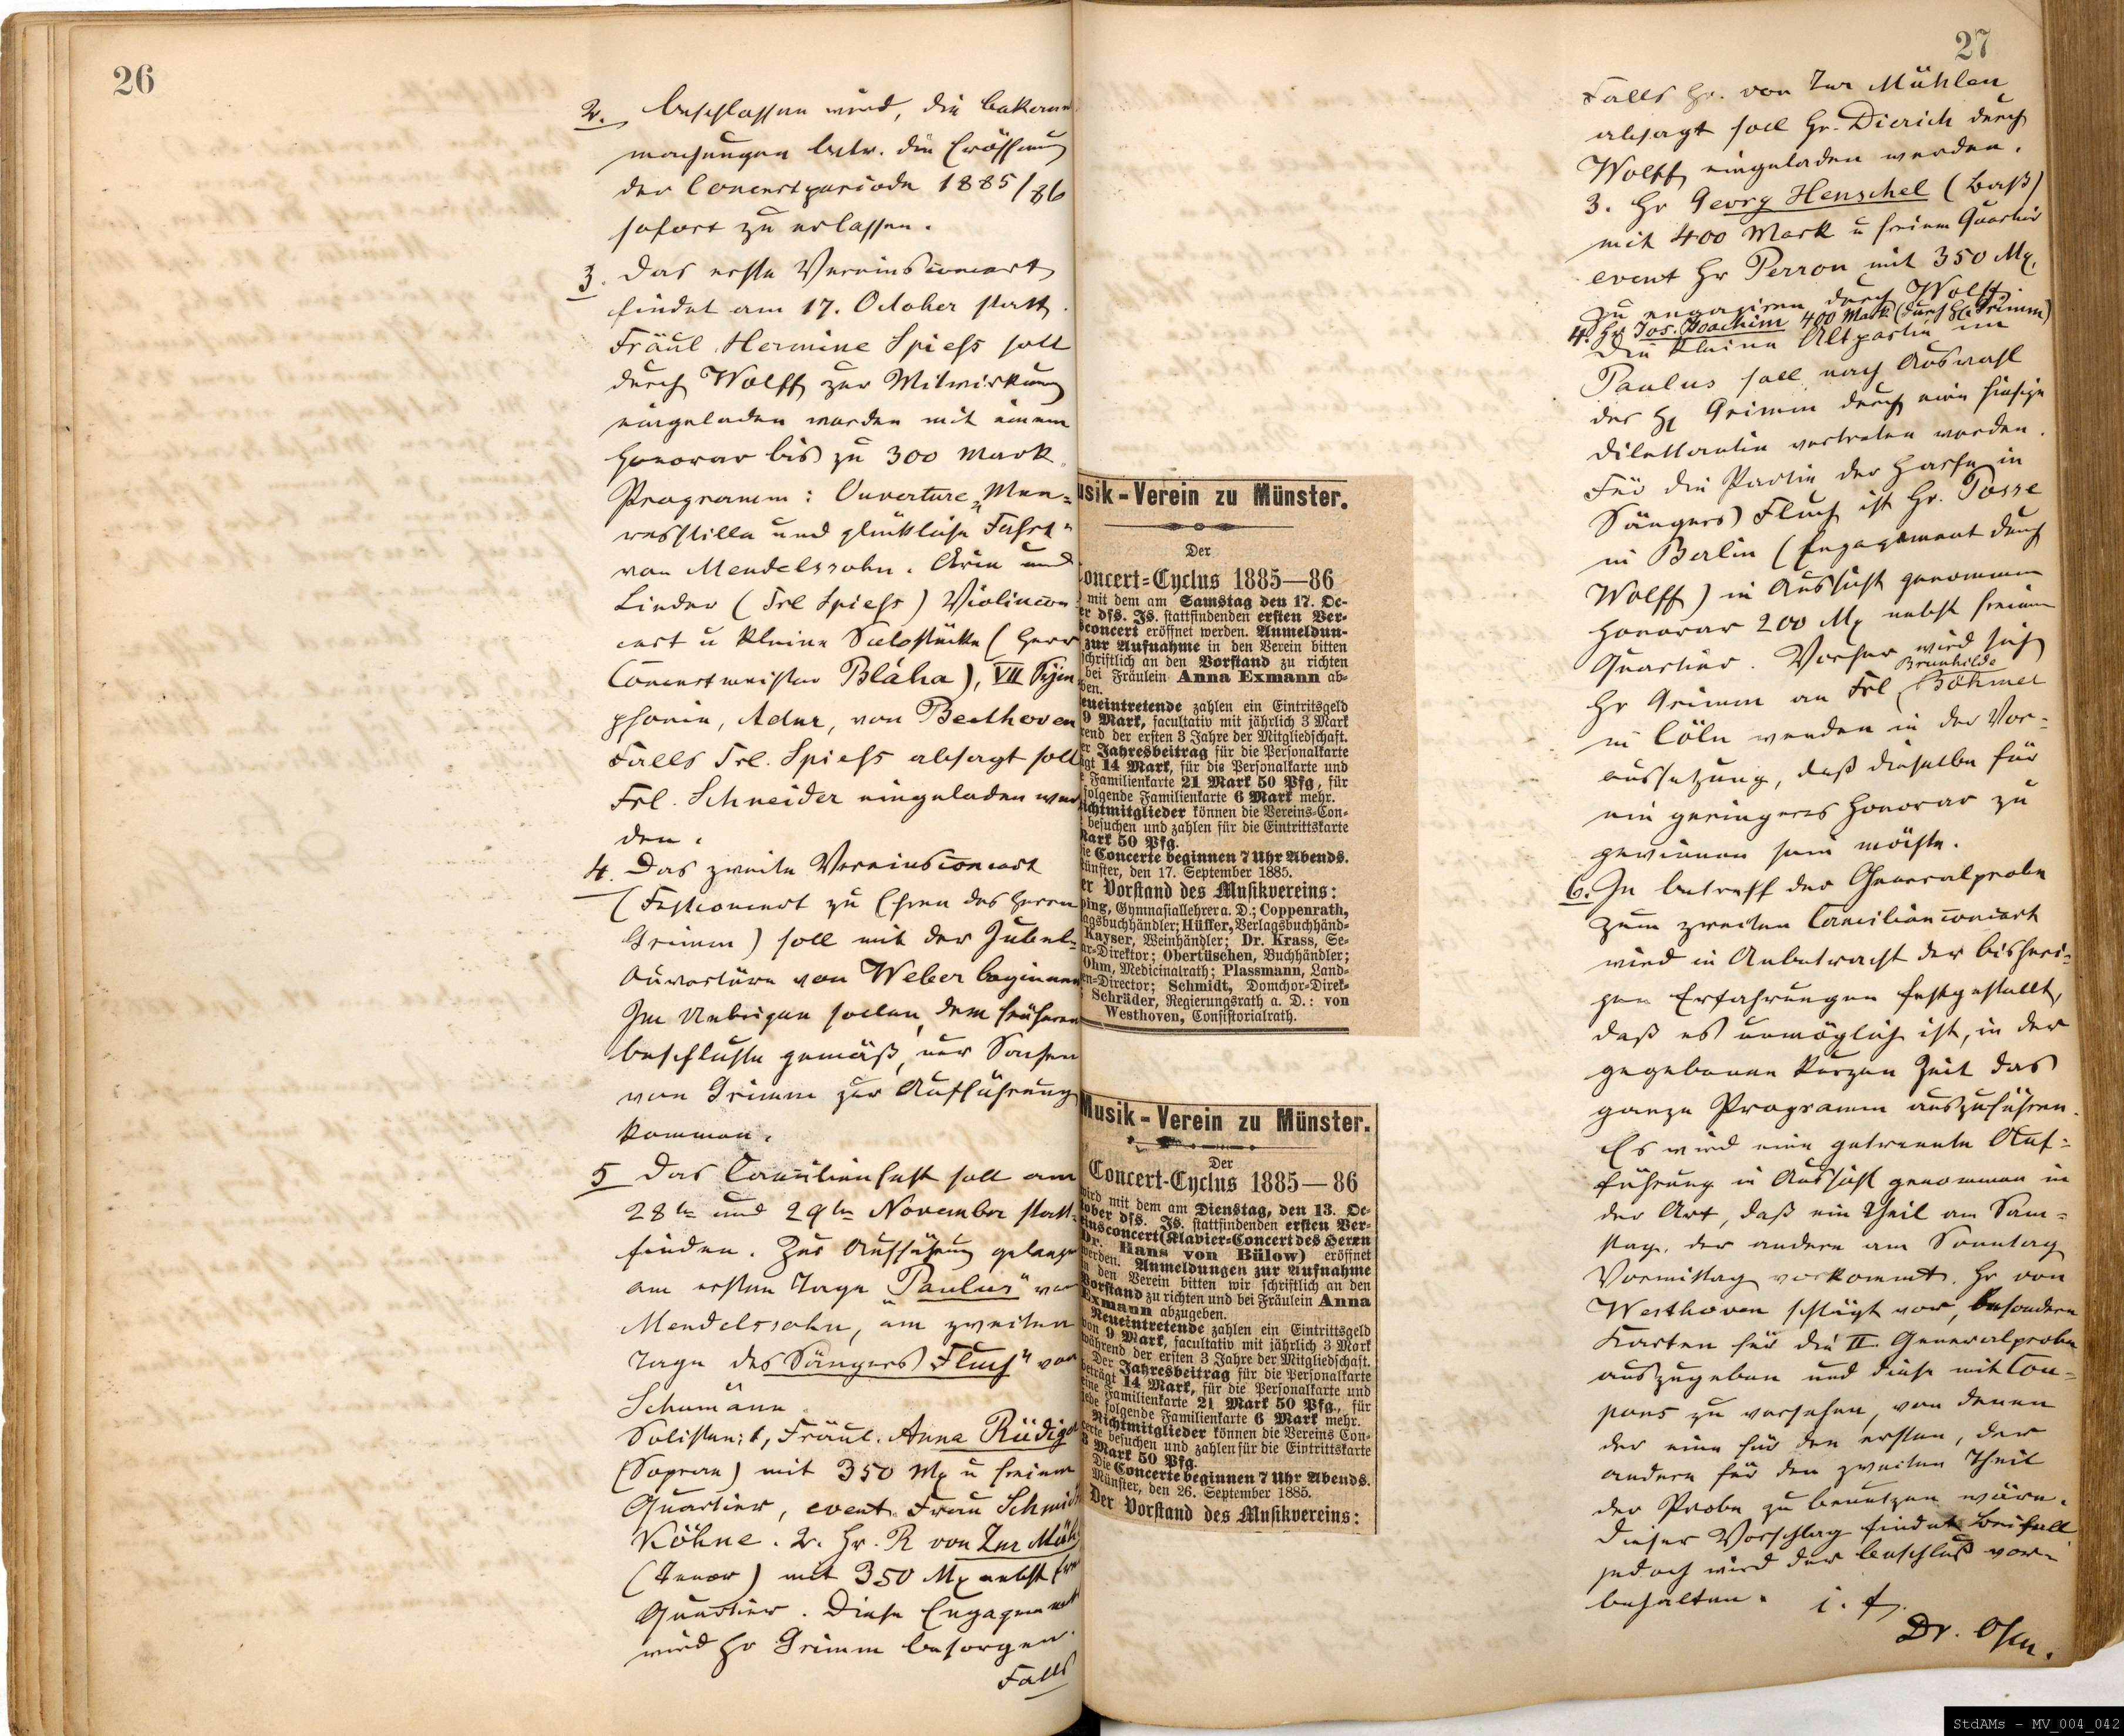 26
2. beschlossen wird, die bekannt
machungen betr. die Eröffnung
der Concertperiode 1885/86
sofort zu erlassen.
3. Das erste Vereinsconcert
findet am 17. October statt.
Fräul Hermine Spiess soll
durch Wolff zur Mitwirkung
eingeladen werden mit einem
Honorar bis zu 300 Mark.
Programm: Ouverture „Mee-
resstille und glückliche Fahrt“
von Mendelssohn. Arie und
Lieder (Frl Spiess) Violincon
cert u kleine Solostücke (Herr
Concertmeister Bláha), VII Sym
phonie, Adur, von Beethoven
Falls Frl. Spiess absagt soll
Frl. Schneider eingeladen wer
den.
4. Das zweite Vereinsconcert
(Festconcert zu Ehren des Herrn
Grimm) soll mit der Jubel-
Ouvertüre von Weber beginnen
Im Uebrigen sollen, dem früheren
beschlusse gemäß, nur Sachen
von Grimm zur Aufführung
kommen.
5 Das Cäcilienfest soll am
28ten und 29ten November statt-
finden. Zur Aufführung gelangt
am ersten Tage „Paulus“ von
Mendelssohn, am zweiten
Tage des Sängers Fluch“ von
Schumann.
Solisten: 1, Fräul. Anna Rüdiger
(Sopran) mit 350 Mk u freiem
Quartier, event. Frau Schmidt
Köhne. 2. Hr. R von Zur Mühl
(Tenor) mit 350 Mk nebst frei
Quartier. Diese Engagement
wird Hr Grimm besorgen.
Falls
usik-Verein zu Münster.
Der
oncert-Cyclus 1885—86
mit dem am Samstag den 17. Oc-
er dfs. Js. stattfindenden ersten Ver-
sconcert eröffnet werden. Anmeldun-
zur Aufnahme in den Verein bitten
schriftlich an den Vorstand zu richten
bei Fräulein Anna Exmann ab-
ben.
eueintretende zahlen ein Eintritsgeld
9 Mark, facultativ mit jährlich 3 Mark
rend der ersten 3 Jahre der Mitgliedschaft.
er Jahresbeitrag für die Personalkarte
ägt 14 Mark, für die Personalkarte und
Familienkarte 21 Mark 50 Pfg, für
folgende Familienkarte 6 Mark mehr.
ichtmitglieder können die Vereins-Con-
besuchen und zahlen für die Eintrittskarte
Mark 50 Pfg.
ie Concerte beginnen 7 Uhr Abends.
ünster, den 17. September 1885.
er Vorstand des Musikvereins:
ping, Gymnasiallehrer a. D.; Coppenrath,
agsbuchhändler; Hüffer, Verlagsbuchhänd-
Kayser, Weinhändler; Dr. Krass, Se-
ar-Direktor; Obertüschen, Buchhändler;
Ohm, Medicinalrath; Plassmann, Land-
en-Director; Schmidt, Domchor-Direk-
Schräder, Regierungsrath a. D.: von
Westhoven, Consistorialrath.
Musik-Verein zu Münster.
Der
Concert-Cyclus 1885—86
wird mit dem am Dienstag, den 13. Oc-
tober dfs. Js. stattfindenden ersten Ver-
einsconcert (Klavier-Concert des Herrn
Dr. Hans von Bülow) eröffnet
werden. Anmeldungen zur Aufnahme
in den Verein bitten wir schriftlich an den
Vorstand zu richten und bei Fräulein Anna
Exmann abzugeben.
Neueintretende zahlen ein Eintrittsgeld
von 9 Mark, facultativ mit jährlich 3 Mark
während der ersten 3 Jahre der Mitgliedschaft.
Der Jahresbeitrag für die Personalkarte
beträgt 14 Mark, für die Personalkarte und
eine Familienkarte 21 Mark 50 Pfg., für
jede folgende Familienkarte 6 Mark mehr.
Nichtmitglieder können die Vereins Con-
certe besuchen und zahlen für die Eintrittskarte
3 Mark 50 Pfg.
Die Concerte beginnen 7 Uhr Abends.
Münster, den 26. September 1885.
Der Vorstand des Musikvereins:
27
Falls Hr. von Zur Mühlen
absagt soll Hr. Dierich durch
Wolff eingeladen werden.
3. Hr Georg Henschel (Baß)
mit 400 Mark u freiem Quartier
event Hr Perron mit 350 Mk.
zu engagiren durch Wolff.
4. Hr Jos. Joachim 400 Mark (durch H. Grimm)
Die kleine Altpartie im
Paulus soll nach Auswahl
des H Grimm durch eine hiesige
Dilettantin vertreten werden.
Für die Partie der Harfe in
Sängers Fluch ist Hr. Posse
in Berlin (Engagement durch
Wolff) in Aussicht genommen
Honorar 200 Mk nebst freiem
Quartier. Vorher wird sich
Brunhilde
Hr Grimm an Frl Böhmer
in Cöln wenden in der Vor-
aussetzung, daß dieselbe für
ein geringeres Honorar zu
gewinnen sein möchte.
6. In betreff der Generalprobe
zum zweiten Cäcilienconcert
wird in Anbetracht der bisheri-
gen Erfahrungen festgestellt,
daß es unmöglich ist, in der
gegebenen kurzen Zeit das
ganze Programm auszuführen.
Es wird eine getrennte Auf-
führung in Aussicht genommen in
der Art, daß ein Theil am Sam-
stag, der andere am Sonntag
Vormittag vorkommt. Hr von
Westhoven schlägt vor, besondere
Karten für die II. Generalprobe
auszugeben und diese mit Cou-
pons zu versehen, von denen
der eine für den ersten, der
andere für den zweiten Theil
der Probe zu benutzen wäre.
Dieser Vorschlag findet Beifall
jedoch wird der beschluß vor-
behalten. i. f.
Dr. Ohm.
StdAMs - MV_004_042